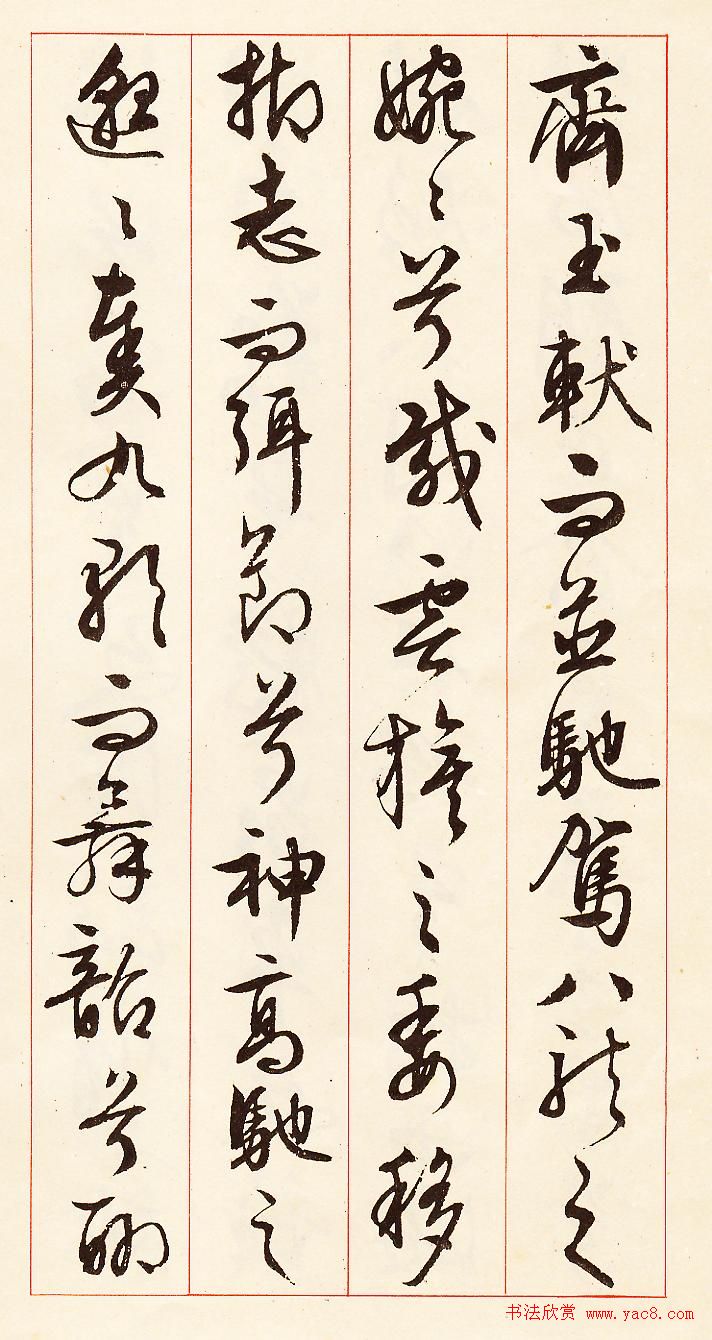 齊玉軑而並馳駕八龍之
婉〻兮載雲旗之委移
抑志而弭節兮神高馳之
邈〻奏九歌而舞韶兮聊
书法欣赏 www.yac8.com